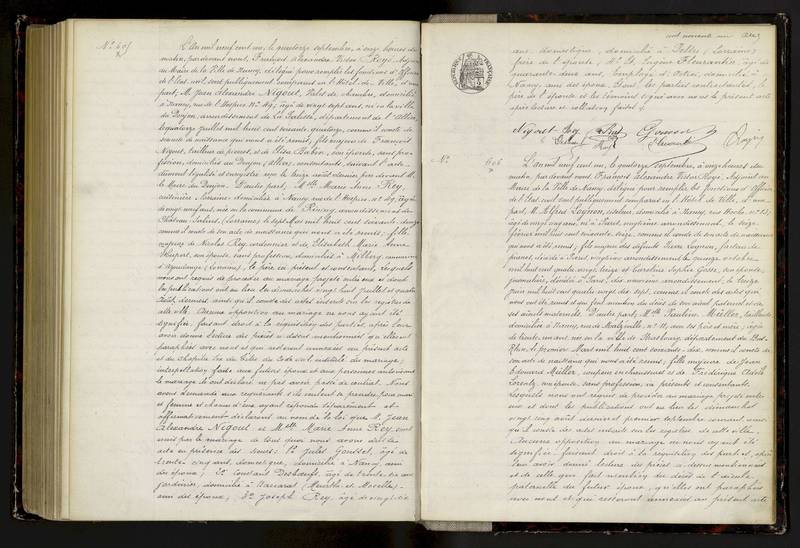 N° 605
L'an mil neuf cent un, le quatorze septembre, à onze heures du
matin, par devant nous, François Alexandre Victor Royé, Adjoint
au Maire de la Ville de Nancy, délégué pour remplir les fonctions d'officier
de l'état civil, sont publiquement comparus en l'Hôtel de Ville, d'une
part, M. Jean Alexandre Nigout, Valet de chambre, domicilié
à Nancy, rue de l'Hospice N° 49, âgé de vingt sept ans, né en la ville
du Donjon, arrondissement de La Palisse, département de l'Allier,
le quatorze juillet mil huit cent soixante quatorze, comme il conste de
son acte de naissance qui nous a été remis, fils majeur de François
Nigout, tailleur de pierres, et de Elisa Babon, son épouse, sans pro-
fession, domiciliés au Donjon (Allier), consentants, suivant l'acte
dûment légalisé et enregistré reçu le treize août dernier par devant M.
le Maire du Donjon. D'autre part, Melle Marie Anne Rey,
cuisinière, Lorraine, domiciliée à Nancy, rue de l'Hospice N° 49, âgée
de vingt neuf ans, née en la commune de Réning, arrondissement de
Château Salins (Lorraine) le sept Mai mil huit cent soixante douze,
comme il conste de son acte de naissance qui nous a été remis, fille
majeure de Nicolas Rey, cordonnier et de Elisabeth Marie Anne
son épouse, sans profession, domiciliés à Milberg, commune
(Lorraine), le père ici présent et consentant. Lesquels
nous ont requis de procéder au mariage projeté entre eux et dont
les publications ont eu lieu les dimanches vingt huit juillet et quatre
août derniers, ainsi qu'il conste des actes insérés sur les registres de
cette ville. Aucune opposition au mariage ne nous ayant été
signifiée, faisant droit à la réquisition des parties, après leur
avoir donné lecture des pièces ci dessus mentionnées qu'elles ont
paraphées avec nous et qui resteront annexées au présent acte
et du chapitre six du titre du Code civil intitulé du mariage;
interpellation faite aux futurs époux et aux personnes autorisant
le mariage ils ont déclaré ne pas avoir passé de contrat. Nous
avons demandé aux requérants s'ils veulent se prendre pour mari
et femme et chacun d'eux ayant répondu séparément et
affirmativement déclarons au nom de la loi que M. Jean
Alexandre Nigout et Melle Marie Anne Rey sont
unis par le mariage de tout quoi nous avons dressé
acte en présence des sieurs: 1° Jules Gousset, âgé de
trente cinq ans, domestique, domicilié à Nancy, ami
des époux; 2° Constant Desboeufs, âgé de trente six ans
jardinier, domicilié à Baccarat (Meurthe et Moselle)
ami des époux; 3° Joseph Rey, âgé de vingt six
cent nonante un
ans, domestique, domicilié à Peltre (Lorraine)
frère de l'épouse; 4° Eugène Fleurantin, âgé de
quarante deux ans, employé d'octroi, domicilié à
Nancy, ami des époux. Tous, les parties contractantes, le
père de l'épouse et les témoins signé avec nous le présent acte
après lecture et collation faites.
Nigout Rey
N° 606
L'an mil neuf cent un, le quatorze septembre, à onze heures du
matin, par devant nous François Alexandre Victor Royé, Adjoint au
Maire de la Ville de Nancy, délégué pour remplir les fonctions d'officier
de l'état civil sont publiquement comparus en l'Hôtel de Ville, d'une
part, M. Alfred Loynon, ciseleur, domicilié à Nancy, rue Hoche N° 15,
âgé de vingt cinq ans, né à Paris, onzième arrondissement, le treize
février mil huit cent soixante seize, comme il conste de son acte de naissance
qui nous a été remis, fils majeur des défunts Pierre Loynon, facteur de
pianos, décédé à Paris onzième arrondissement le quinze octobre
mil huit cent quatre vingt treize et Caroline Sophie Gosse, son épouse,
journalière, décédée à Paris, dix onzième arrondissement, le treize
juin mil huit cent quatre vingt dix sept, comme il conste des actes qui
nous ont été remis et qui font mention du décès de son aïeul paternel et de
ses aïeuls maternels. D'autre part, Melle Pauline Müller, tailleuse,
domiciliée à Nancy, rue de Malzéville, N° 11, avec ses père et mère, âgée
de trente un ans, née en la ville de Strasbourg, département du Bas-
Rhin, le premier Mars mil huit cent soixante dix, comme il conste de
son acte de naissance qui nous a été remis, fille majeure de Jean
Edouard Müller, coupeur en chaussures et de Frédérique Adèle
Lorentz, son épouse, sans profession, ici présents et consentants.
Lesquels nous ont requis de procéder au mariage projeté entre
eux et dont les publications ont eu lieu les dimanches
vingt cinq août dernier et premier septembre courant ainsi
qu'il conste des actes insérés sur les registres de cette ville.
Aucune opposition au mariage ne nous ayant été
signifiée, faisant droit à la réquisition des parties, après
leur avoir donné lecture des pièces ci dessus mentionnées
et de celle qui fait mention du décès de l'aïeule
paternelle du futur époux, qu'elles ont paraphées
avec nous et qui resteront annexées au présent acte